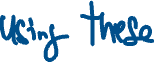 using these